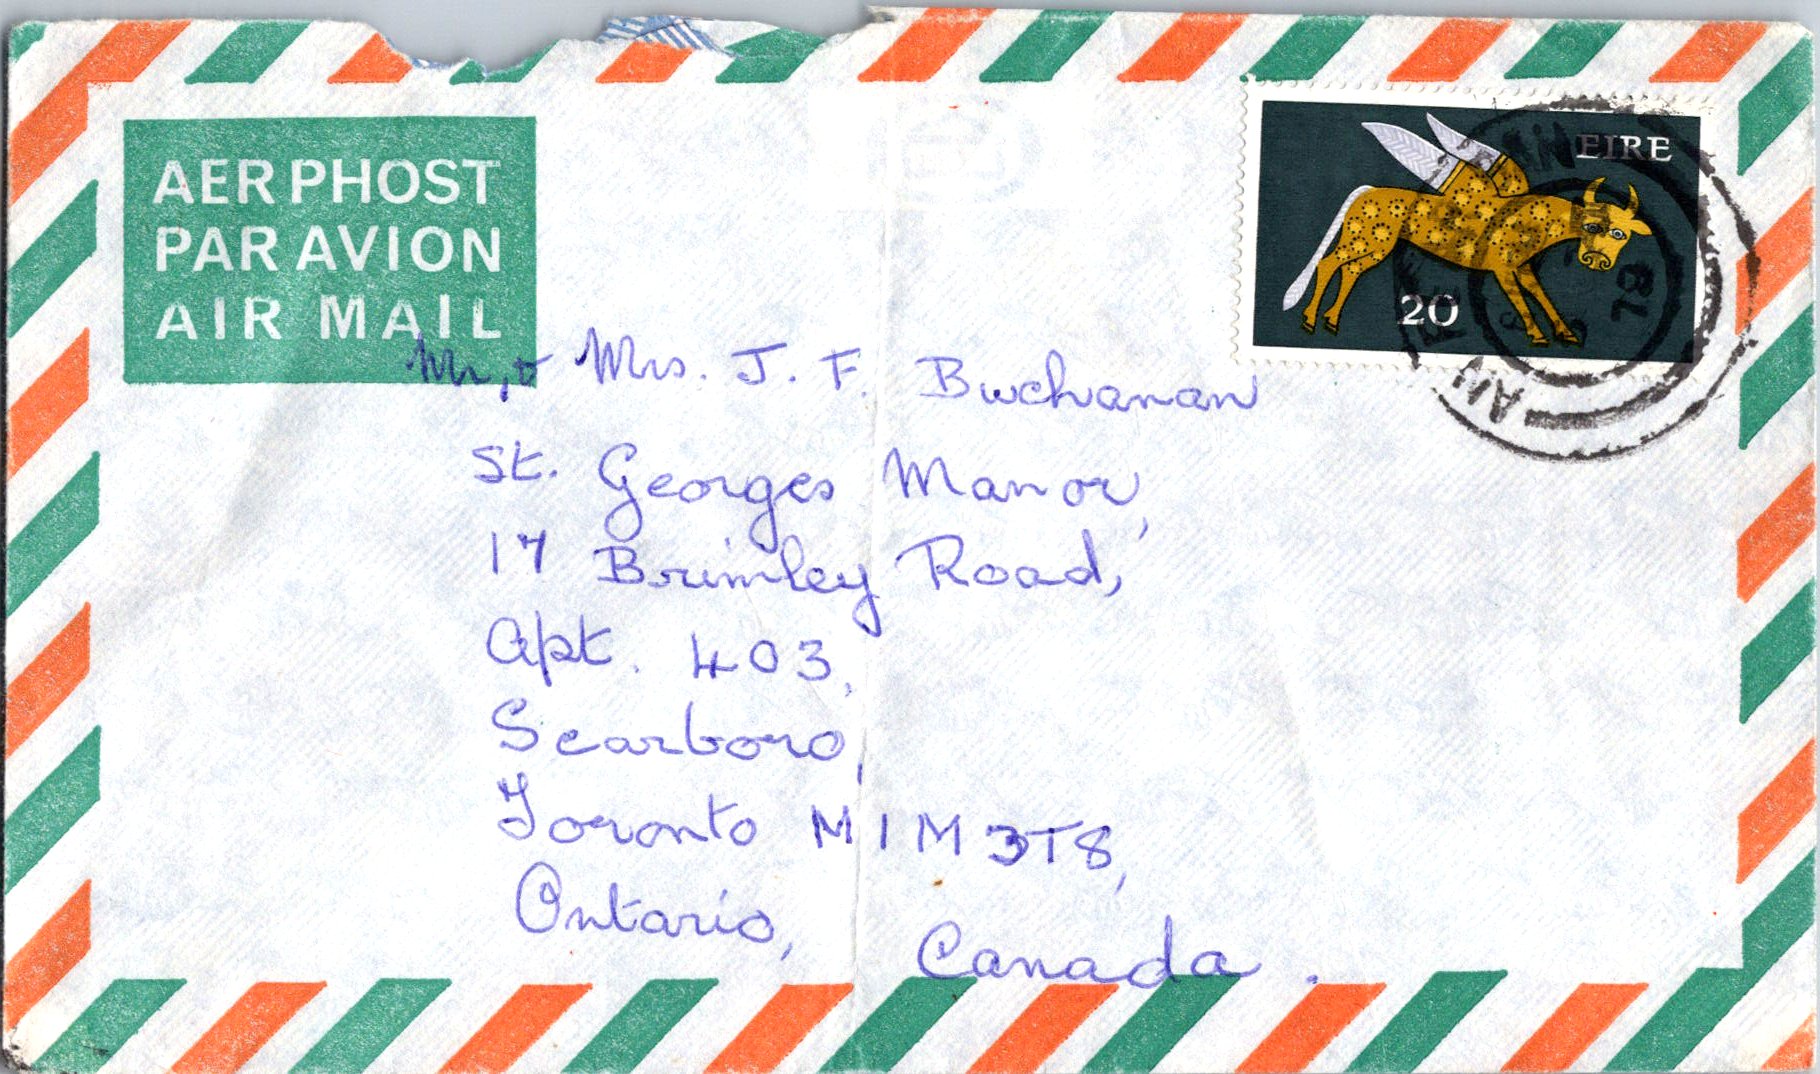 AERPHOST
PAR AVION
AIR MAIL
EIRE
20
78
Mr, & Mrs. J. F. Buchanan
St. Georges Manor,
17 Brimley Road,
Apt. 403,
Scarboro,
Toronto M1M 3T8,
Ontario, Canada.